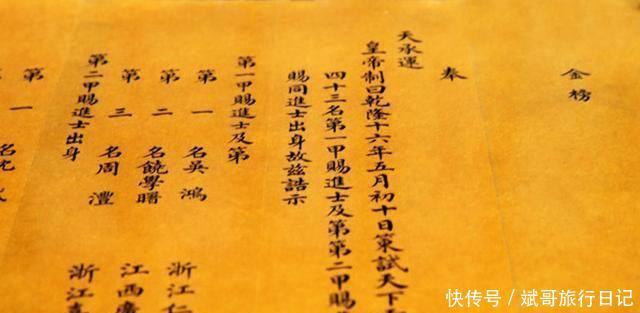 金榜
奉
天承運
皇帝制曰乾隆十六年五月初十日策試天下
四十三名第一甲賜進士及第第二甲賜
賜同進士出身故茲誥示
第一甲賜進士及第
第一名吳鴻 浙江仁
第二名饒學曙 江西廣
第三名周澧 浙江
第二甲賜進士出身
第一名
快传号／斌哥旅行日记